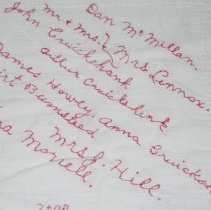 Dan McMillan.
Mr & Mrs J. Lennox.
John Cruickshank
Allen Cruickshank
James Howey. Anna Cruicksh
Burnstead
Mrs J. Hill.
Morrell.